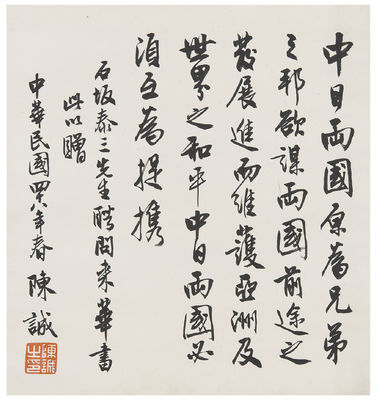 中日兩國原為兄弟
之邦欲謀兩國前途之
發展進而維護亞洲及
世界之和平中日兩國必
須互為提携
石坂泰三先生聘問來華書
此以贈
中華民國四八年春 陳誠
陳誠之印